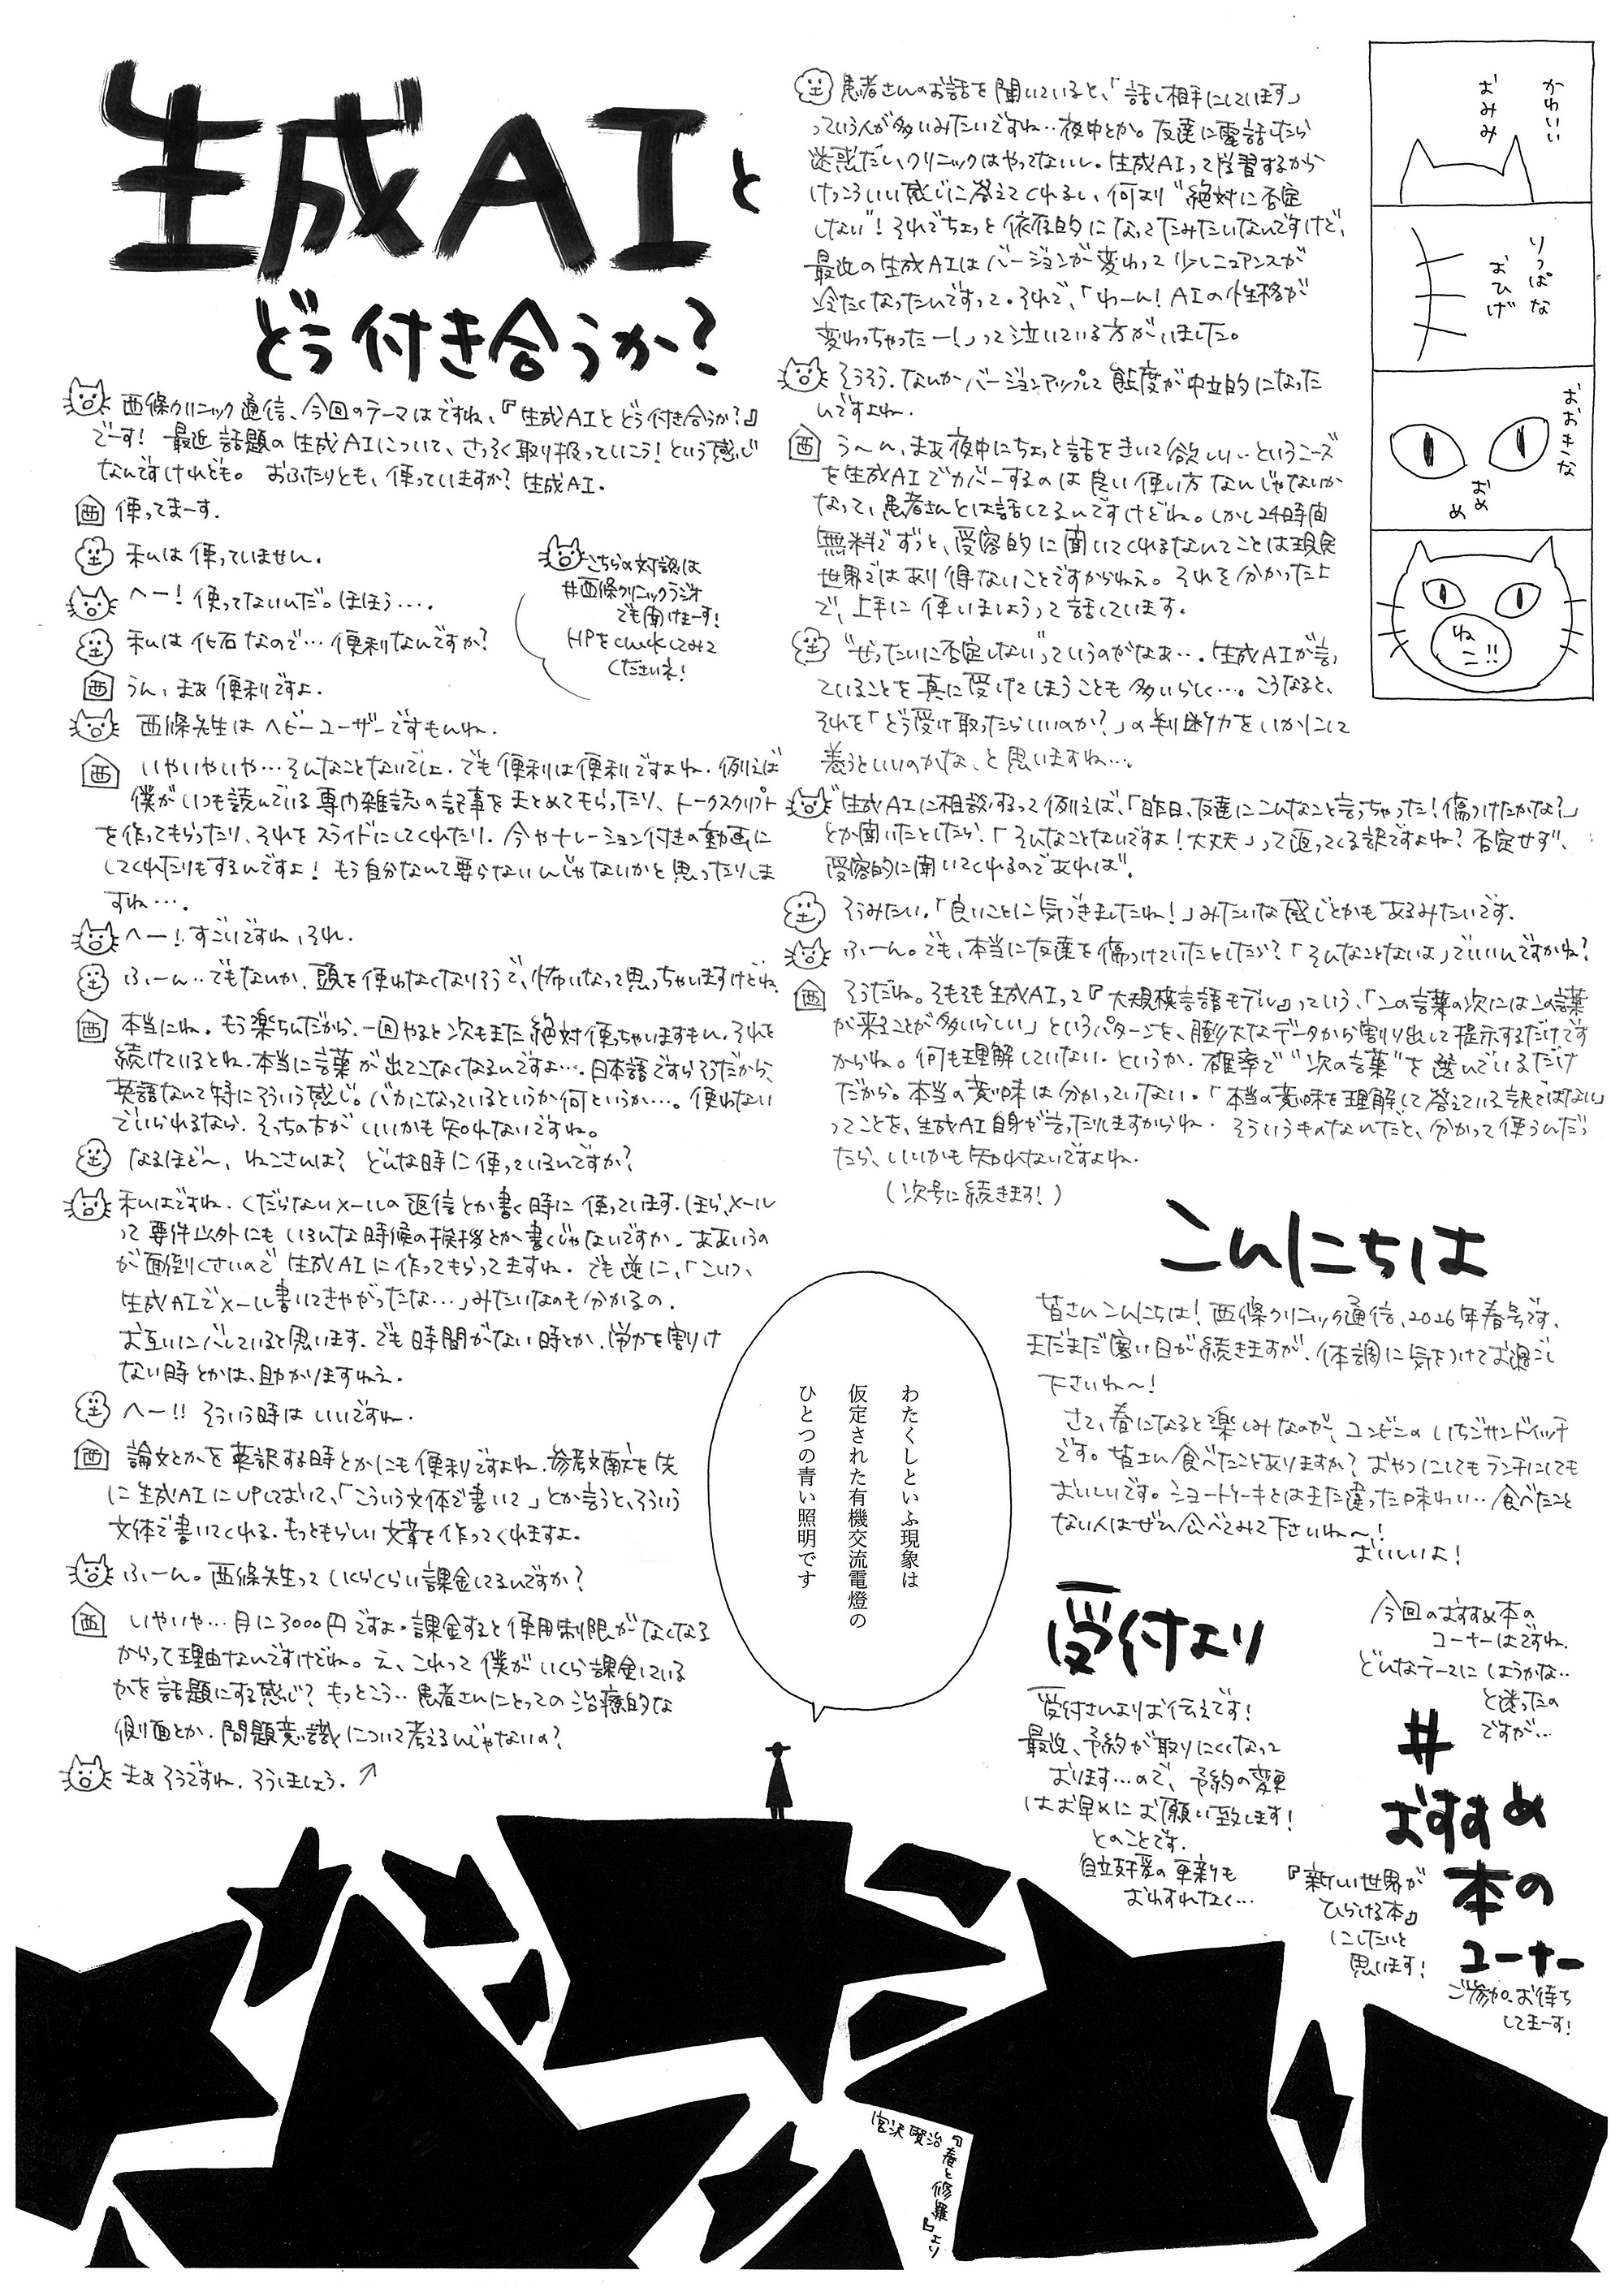 生成AIと
どう付き合うか?
西條クリニック通信、今回のテーマはですね、『生成AIとどう付き合うか?』
でーす! 最近話題の生成AIについて、さっそく取り扱っていこう!という感じ
なんですけれども。おふたりとも、使っていますか? 生成AI.
西 使ってまーす.
私は使っていません.
へー! 使ってないんだ。ほほう….
私は化石なので… 便利なんですか?
西 うん、まぁ便利ですよ.
西條先生はヘビーユーザーですもんね.
こちらの対談は
#西條クリニックラジオ
でも聞けまーす!
HPをcheckしてみて
くださいネ!
西 いやいやいや…そんなことないでしょ. でも便利は便利ですよね. 例えば
僕がいつも読んでいる専門雑誌の記事をまとめてもらったり、トークスクリプト
を作ってもらったり、それをスライドにしてくれたり. 今やナレーション付きの動画に
してくれたりもするんですよ! もう自分なんて要らないんじゃないかと思ったりしま
すね….
へー! すごいですね、それ.
ふーん‥でもなんか、頭を使わなくなりそうで、怖いなって思っちゃいますけどね.
西 本当にね。もう楽ちんだから、一回やると次もまた絶対使っちゃいますもん. それを
続けているとね、本当に言葉が出てこなくなるんですよ…. 日本語ですらそうだから、
英語なんて特にそういう感じ。バカになっているというか何というか…. 使わない
でいられるなら、そっちの方がいいかも知れないですね。
なるほど〜、ねこさんは? どんな時に使っているんですか?
私はですね、くだらないメールの返信とか書く時に使っています. ほら、メール
って要件以外にもいろんな時候の挨拶とか書くじゃないですか. ああいうの
が面倒くさいので生成AIに作ってもらってますね. でも逆に、「こいつ、
生成AIでメール書いてきやがったな…」みたいなのも分かるの.
お互いにバレていると思います. でも時間がない時とか、労力を割りけ
ない時とかは、助かりますねえ.
へー!! そういう時はいいですね.
西 論文とかを英訳する時とかにも便利ですよね. 参考文献を先
に生成AIにUPしておいて、「こういう文体で書いて」とか言うと、そういう
文体で書いてくれる. もっともらしい文章を作ってくれますよ.
ふーん。西條先生っていくらくらい課金してるんですか?
西 いやいや… 月に3000円ですよ. 課金すると使用制限がなくなる
からって理由なんですけどね。え、これって僕がいくら課金している
かを話題にする感じ? もっとこう‥患者さんにとっての治療的な
側面とか、問題意識について考えるんじゃないの?
まぁそうですね、そうしましょう. ↗
患者さんのお話を聞いていると、「話し相手にしています」
っていう人が多いみたいですね‥夜中とか。友達に電話したら
迷惑だし、クリニックはやってないし。生成AIって学習するから
けっこういい感じに答えてくれるし、何より"絶対に否定
しない"! それでちょっと依存的になってたみたいなんですけど、
最近の生成AIはバージョンが変わって少しニュアンスが
冷たくなったんですって。それで、「わーん! AIの性格が
変わっちゃったー!」って泣いている方がいました。
そうそう. なんかバージョンアップして態度が中立的になった
んですよね.
西 う〜ん、まぁ夜中にちょっと話をきいて欲しい‥というニーズ
を生成AIでカバーするのは良い使い方なんじゃないか
なって、患者さんとは話してるんですけどね。しかし24時間
無料でずっと、受容的に聞いてくれるなんてことは現実
世界ではあり得ないことですからねえ。それを分かった上
で、上手に使いましょうって話しています.
"ぜったいに否定しない"っていうのがなぁ…. 生成AIが言っ
ていることを真に受けてしまうことも多いらしく…。こうなると、
それを「どう受け取ったらいいのか?」の判断力をいかにして
養うといいのかな、と思いますね….
生成AIに相談するって例えば、「昨日、友達にこんなこと言っちゃった! 傷つけたかな?」
とか聞いたとしたら、「そんなことないですよ! 大丈夫」って返ってくる訳ですよね? 否定せず、
受容的に聞いてくれるのであれば.
そうみたい.「良いことに気づきましたね!」みたいな感じとかもあるみたいです.
ふーん。でも、本当に友達を傷つけていたとしたら?「そんなことないよ」でいいんですかね?
西 そうだね。そもそも生成AIって『大規模言語モデル』っていう、「この言葉の次にはこの言葉
が来ることが多いらしい」というパターンを、膨大なデータから割り出して提示するだけです
からね。何も理解していない. というか、確率で"次の言葉"を選んでいるだけ
だから。本当の意味は分かっていない。「本当の意味を理解して答えている訳ではない」
ってことを、生成AI自身が言ったりしますからね. そういうものなんだと、分かって使うんだっ
たら、いいかも知れないですよね.
(次号に続きます!)
かわいい
おみみ
りっぱな
おひげ
おおきな
おめめ
ねこ!!
こんにちは
皆さんこんにちは! 西條クリニック通信、2026年春号です.
まだまだ寒い日が続きますが、体調に気をつけてお過ごし
下さいね〜!
さて、春になると楽しみなのが、コンビニのいちごサンドイッチ
です。皆さん食べたことありますか? おやつにしてもランチにしても
おいしいです。ショートケーキとはまた違った味わい‥食べたこと
ない人はぜひ食べてみて下さいね〜!
おいしいよ!
わたくしといふ現象は
仮定された有機交流電燈の
ひとつの青い照明です
受付より
受付さんよりお伝えです!
最近、予約が取りにくくなって
おります…ので、予約の変更
はお早めにお願い致します!
とのことです.
自立支援の更新も
おわすれなく…
今回のおすすめ本の
コーナーはですね、
どんなテーマにしようかな‥
と迷ったの
ですが…
#
おすすめ
本の
コーナー
『新しい世界が
ひらける本』
にしたいと
思います!
ご参加お待ち
してまーす!
宮沢賢治
『春と修羅』より